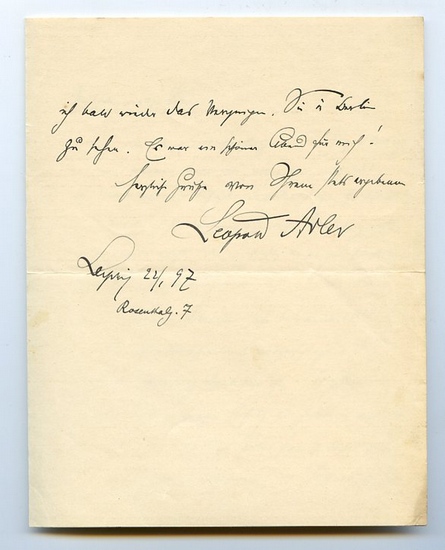 ich bald wieder das Vergnügen, Sie in Berlin
zu sehen. Es war ein schöner Abend für mich!
Herzliche Grüße von Ihrem stets ergebenen
Leopold Adler
Leipzig 22/1 97
Rosenthalg. 7